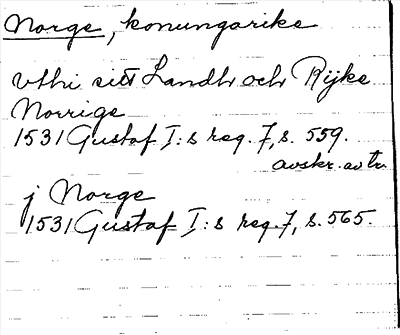 Norge, konungarike
vthi sitt Landh och Rijke
Norrige
1531 Gustaf I:s reg. 7, s. 559.
avskr. av tr.
j Norge
1531 Gustaf I:s reg. 7, s. 565.